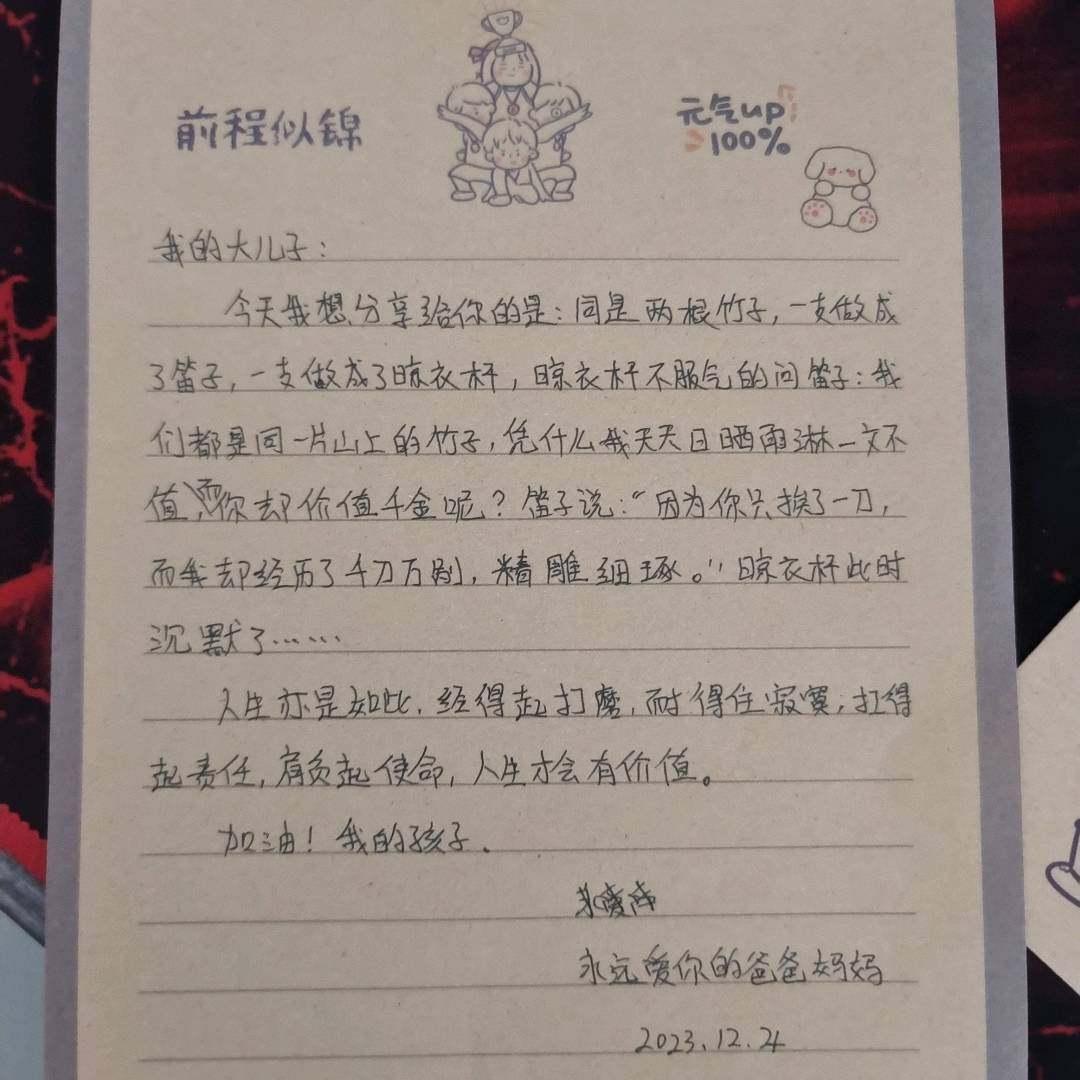 前程似锦
元气up
100%
我的大儿子：
今天我想分享给你的是：同是两根竹子，一支做成
了笛子，一支做成了晾衣杆，晾衣杆不服气的问笛子：我
们都是同一片山上的竹子，凭什么我天天日晒雨淋一文不
值，而你却价值千金呢？笛子说：“因为你只挨了一刀，
而我却经历了千刀万剐，精雕细琢。”晾衣杆此时
沉默了……
人生亦是如此，经得起打磨，耐得住寂寞，扛得
起责任，肩负起使命，人生才会有价值。
加油！我的孩子。
永远爱你的爸爸妈妈
2023.12.24